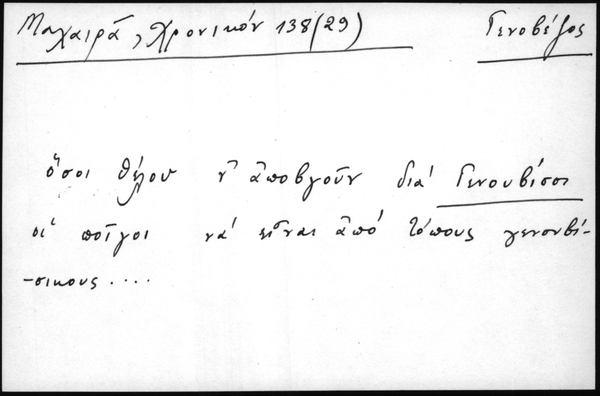 Μαχαιρᾶ, Χρονικόν 138(29) Γενοβέζος
ὅσοι θέλου ν' ἀποβγοῦν διά Γενουβίσοι
οἱ ποῖγοι νά εἶναι ἀπό τόπους γενουβί-
-σικους....